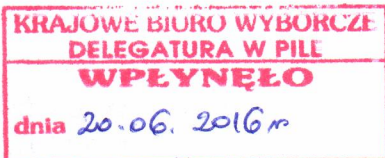 KRAJOWE BIURO WYBORCZE
DELEGATURA W PILE
WPŁYNĘŁO
dnia 20.06.2016 r